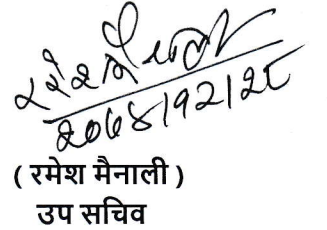 २०७४।१२।२८
( रमेश मैनाली )
उप सचिव